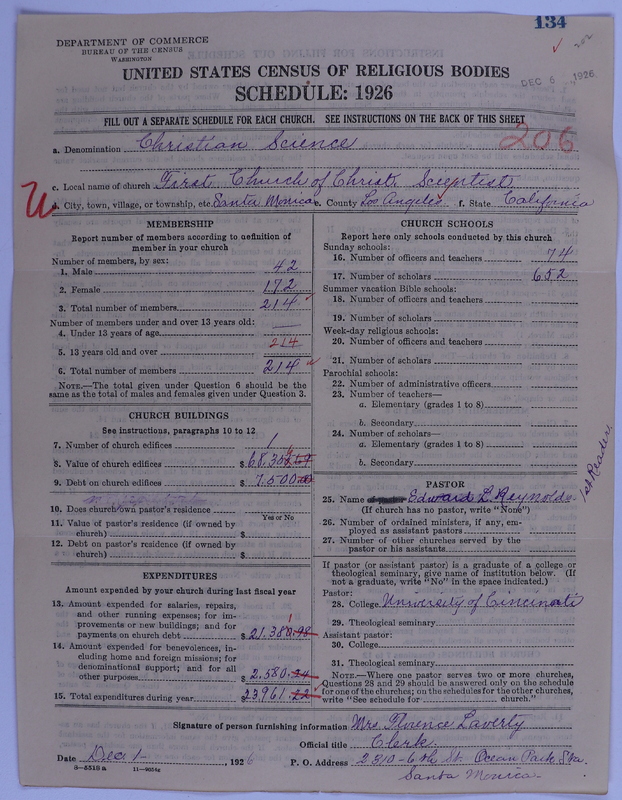 134
DEPARTMENT OF COMMERCE
BUREAU OF THE CENSUS
WASHINGTON
UNITED STATES CENSUS OF RELIGIOUS BODIES
DEC 6 1926
SCHEDULE: 1926
FILL OUT A SEPARATE SCHEDULE FOR EACH CHURCH. SEE INSTRUCTIONS ON THE BACK OF THIS SHEET
206
a. Denomination Christian Science
c. Local name of church First Church of Christ, Scientist
U
d. City, town, village, or township, etc. Santa Monica e. County Los Angeles f. State California
MEMBERSHIP
Report number of members according to definition of member in your church
Number of members, by sex:
1. Male 42
2. Female 172
3. Total number of members 214
Number of members under and over 13 years old:
4. Under 13 years of age —
5. 13 years old and over 214
6. Total number of members 214
NOTE.—The total given under Question 6 should be the same as the total of males and females given under Question 3.
CHURCH BUILDINGS
See instructions, paragraphs 10 to 12
7. Number of church edifices 1
8. Value of church edifices $
9. Debt on church edifices $ 7,500.00
10. Does church own pastor's residence
Yes or No
11. Value of pastor's residence (if owned by church) $
12. Debt on pastor's residence (if owned by church) $
EXPENDITURES
Amount expended by your church during last fiscal year
13. Amount expended for salaries, repairs, and other running expenses; for improvements or new buildings; and for payments on church debt $ 21,380.98
14. Amount expended for benevolences, including home and foreign missions; for denominational support; and for all other purposes $ 2,580.24
15. Total expenditures during year $ 23,961.22
CHURCH SCHOOLS
Report here only schools conducted by this church
Sunday schools:
16. Number of officers and teachers 74
17. Number of scholars 652
Summer vacation Bible schools:
18. Number of officers and teachers
19. Number of scholars
Week-day religious schools:
20. Number of officers and teachers
21. Number of scholars
Parochial schools:
22. Number of administrative officers
23. Number of teachers—
a. Elementary (grades 1 to 8)
b. Secondary
24. Number of scholars—
a. Elementary (grades 1 to 8)
b. Secondary
PASTOR
25. Name Edward L. Reynolds
1st Reader
(If church has no pastor, write "None")
26. Number of ordained ministers, if any, employed as assistant pastors
27. Number of other churches served by the pastor or his assistants
If pastor (or assistant pastor) is a graduate of a college or theological seminary, give name of institution below. (If not a graduate, write "No" in the space indicated.)
Pastor:
28. College University of Cincinnati
29. Theological seminary
Assistant pastor:
30. College
31. Theological seminary
NOTE.—Where one pastor serves two or more churches, Questions 28 and 29 should be answered only on the schedule for one of the churches; on the schedules for the other churches, write "See schedule for church."
Signature of person furnishing information Mrs. Florence Laverty
Official title Clerk
Date Dec 1- , 1926 P. O. Address 2310-6th St. Ocean Park Sta.
8—5518a 11—9054e Santa Monica